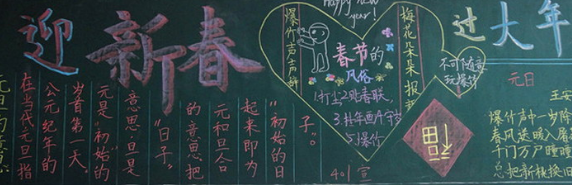 迎新春
子”。
初始的日
起来即为
元和旦合
的意思,把
“日子”
意思;旦是
元是“初始”的
岁首第一天。
公元纪年的
在当代元旦指
Happy new year!
爆竹声声辞
梅花朵朵报
春节的
风俗
1打尘2贴春联,
3.挂年画4守岁
5爆竹
不可随意
玩爆竹
福
401宣
过大年
元日
王安
爆竹声中一岁除
春风送暖入屠
千门万户曈曈
总把新桃换旧